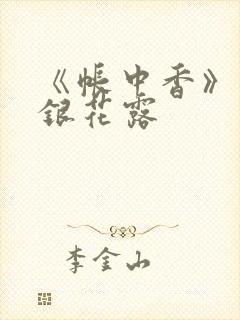 《帐中香》
银花露
李金山